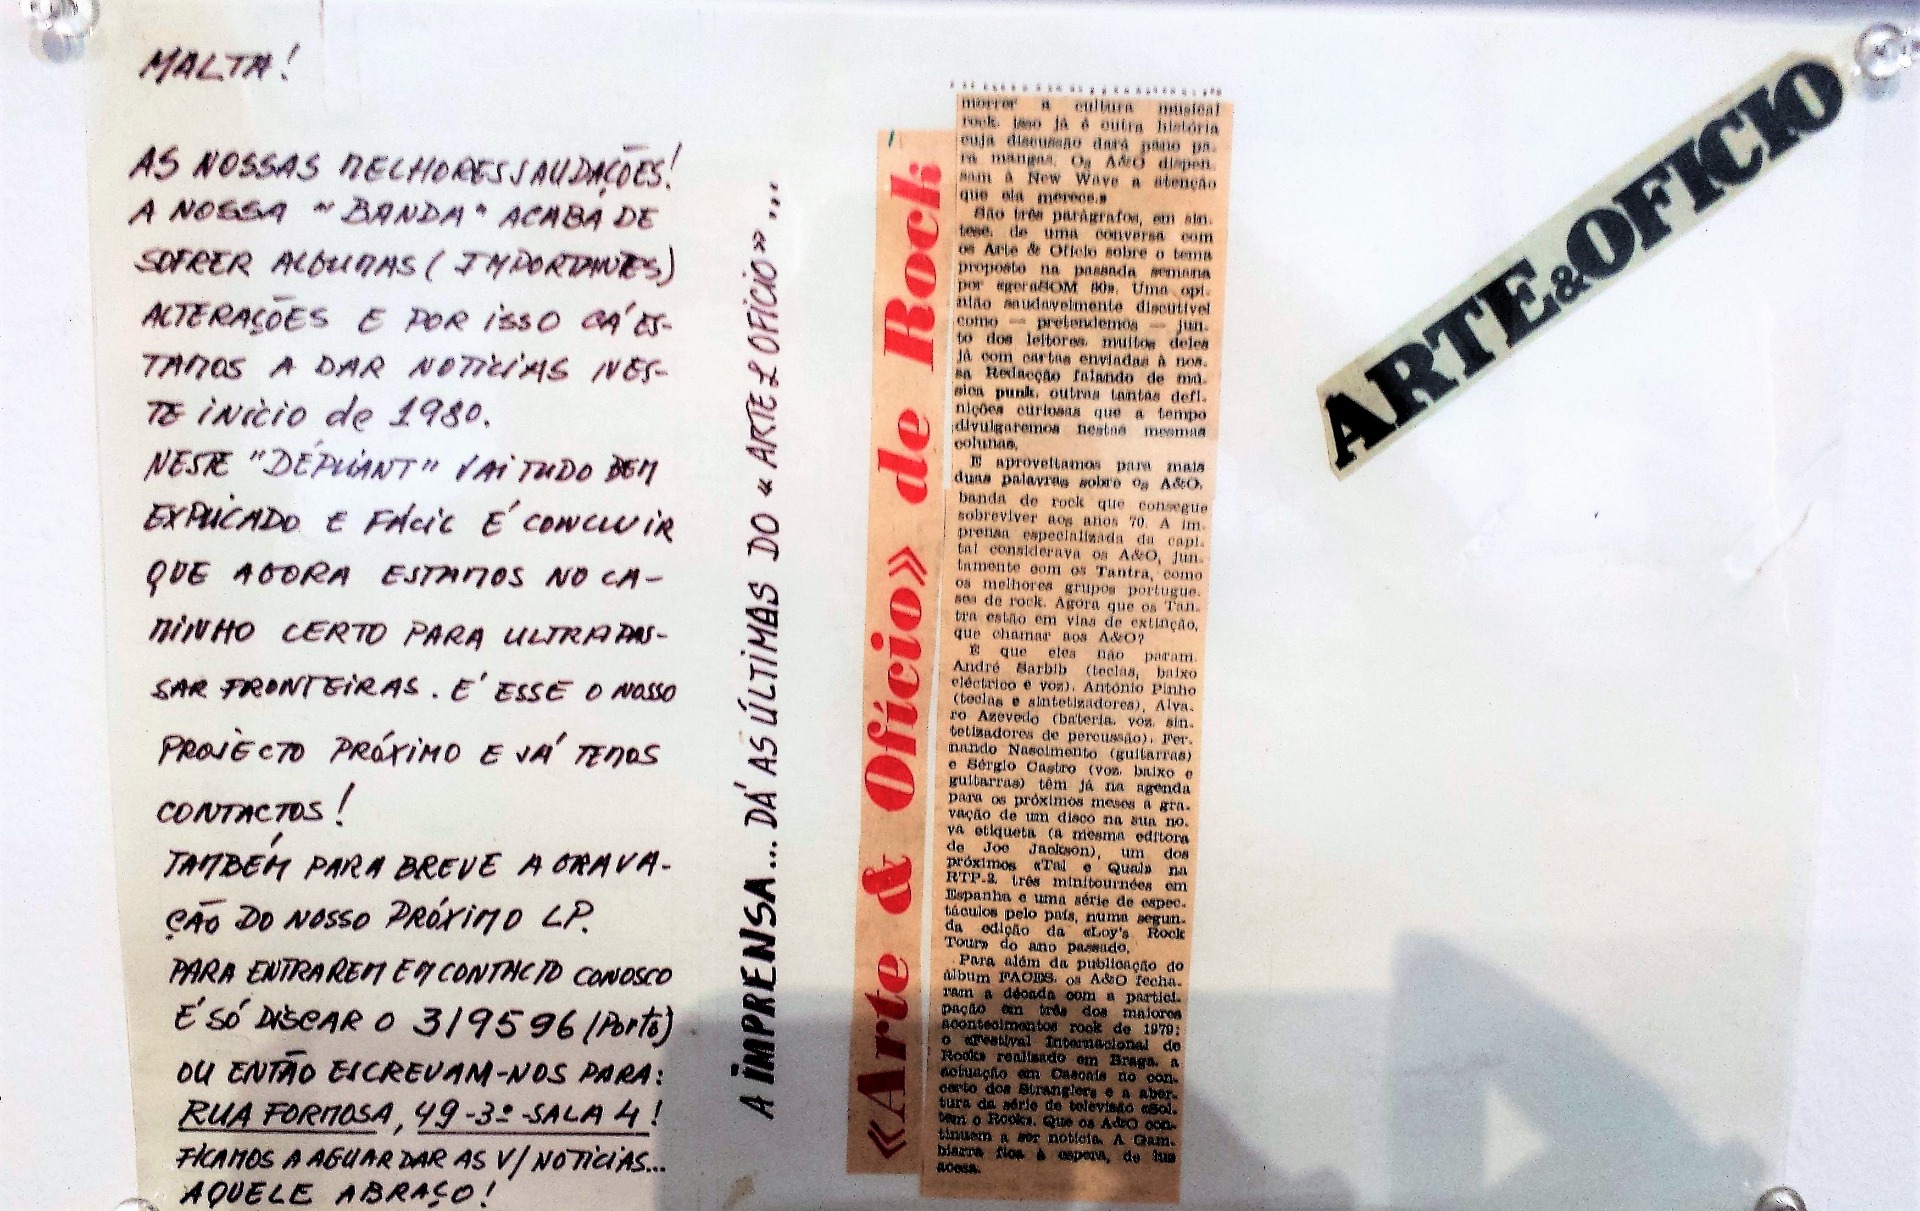 MALTA!
AS NOSSAS MELHORES SAUDAÇÕES!
A NOSSA "BANDA" ACABA DE
SOFRER ALGUMAS (IMPORTANTES)
ALTERAÇÕES E POR ISSO CÁ ES-
TAMOS A DAR NOTÍCIAS NES-
TE INÍCIO de 1980.
NESTE "DÉPLIANT" VAI TUDO BEM
EXPLICADO E FÁCIL É CONCLUIR
QUE AGORA ESTAMOS NO CA-
MINHO CERTO PARA ULTRAPAS-
SAR FRONTEIRAS. E' ESSE O NOSSO
PROJECTO PRÓXIMO E JÁ TEMOS
CONTACTOS!
TAMBÉM PARA BREVE A GRAVA-
ÇÃO DO NOSSO PRÓXIMO LP.
PARA ENTRAREM EM CONTACTO CONOSCO
É SÓ DISCAR O 319596 (Porto)
OU ENTÃO ESCREVAM-NOS PARA:
RUA FORMOSA, 49-3º-SALA 4!
FICAMOS A AGUARDAR AS V/ NOTÍCIAS...
AQUELE ABRAÇO!
A IMPRENSA... DÁ AS ÚLTIMAS DO «ARTE & OFICIO»...
«Arte & Ofício» de Rock
morrer a cultura musical
rock. isso já é outra história
cuja discussão dará pano pa-
ra mangas. Os A&O dispen-
sam à New Wave a atenção
que ela merece.»
São três parágrafos, em sín-
tese, de uma conversa com
os Arte & Ofício sobre o tema
proposto na passada semana
por «geraSOM 80». Uma opi-
nião saudavelmente discutível
como — pretendemos — jun-
to dos leitores. muitos deles
já com cartas enviadas à nos-
sa Redacção falando de mú-
sica punk. outras tantas defi-
nições curiosas que a tempo
divulgaremos nestas mesmas
colunas.
E aproveitamos para mais
duas palavras sobre os A&O.
banda de rock que consegue
sobreviver aos anos 70. A im-
prensa especializada da capi-
tal considerava os A&O, jun-
tamente com os Tantra, como
os melhores grupos portugue-
ses de rock. Agora que os Tan-
tra estão em vias de extinção,
que chamar aos A&O?
É que eles não param.
André Sarbib (teclas, baixo
eléctrico e voz). António Pinho
(teclas e sintetizadores), Álva-
ro Azevedo (bateria. voz. sin-
tetizadores de percussão). Fer-
nando Nascimento (guitarras)
e Sérgio Castro (voz. baixo e
guitarras) têm já na agenda
para os próximos meses a gra-
vação de um disco na sua no-
va etiqueta (a mesma editora
de Joe Jackson), um dos
próximos «Tal e Qual» na
RTP-2. três minitournées em
Espanha e uma série de espec-
táculos pelo país, numa segun-
da edição da «Loy's Rock
Tour» do ano passado.
Para além da publicação do
álbum FACES. os A&O fecha-
ram a década com a partici-
pação em três dos maiores
acontecimentos rock de 1979:
o «Festival Internacional de
Rock» realizado em Braga. a
actuação em Cascais no con-
certo dos Stranglers e a aber-
tura da série de televisão «Sol-
tem o Rock». Que os A&O con-
tinuem a ser notícia. A Gam-
biarra fica à espera, de luz
acesa.
ARTE&OFICIO